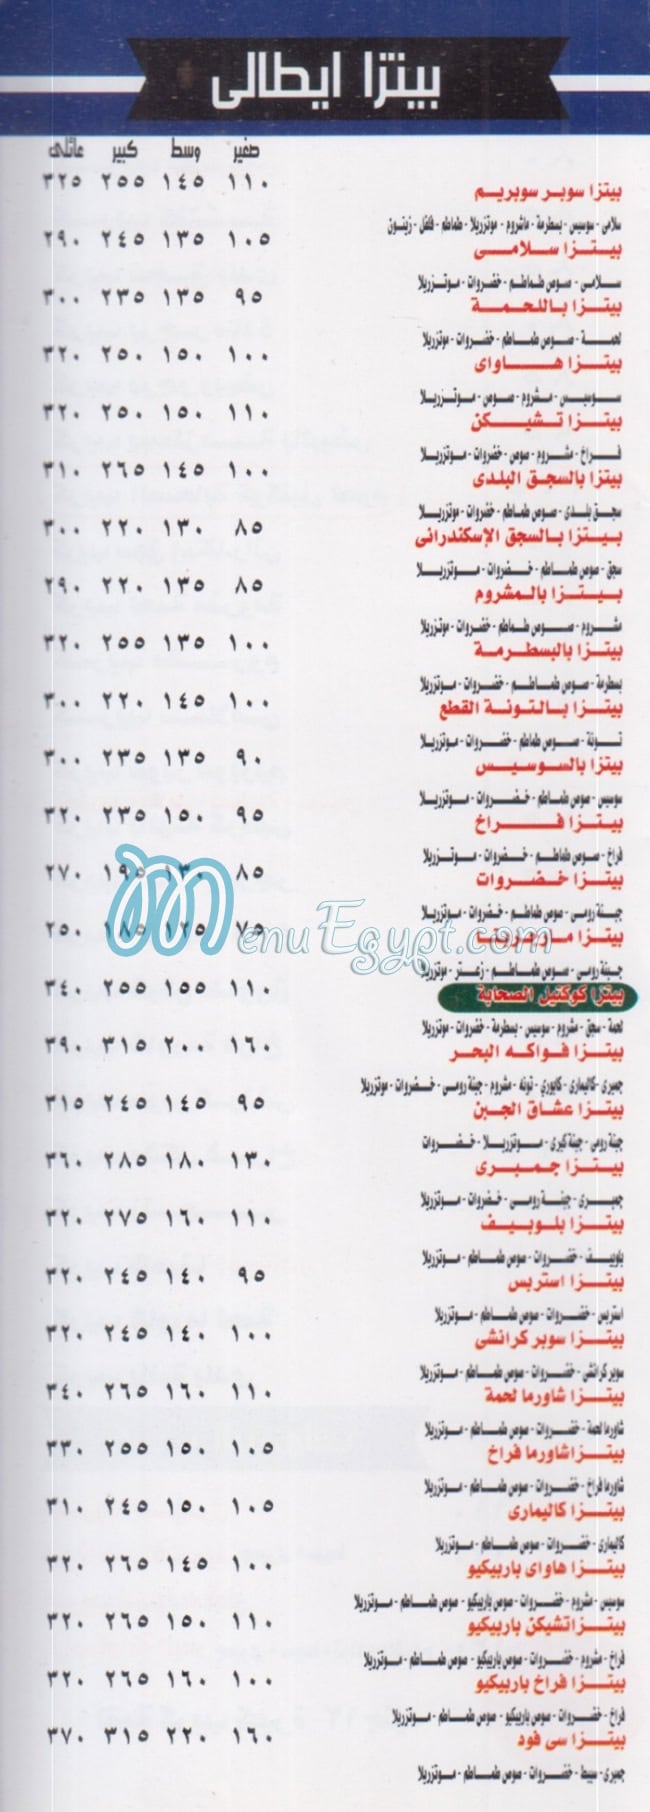 بيتزا ايطالى
صغير وسط كبير عائلى
بيتزا سوبر سوبريم ١١٠ ١٤٥ ٢٥٥ ٣٢٥
سلامى - سوسيس - بسطرمة - ماشروم - موتزريلا - طماطم - فلفل - زيتون
بيتزا سلامى ١٠٥ ١٣٥ ٢٤٥ ٢٩٠
سلامى - صوص طماطم - خضروات - موتزريلا
بيتزا باللحمة ٩٥ ١٣٥ ٢٣٥ ٣٠٠
لحمة - صوص طماطم - خضروات - موتزريلا
بيتزا هاواى ١٠٠ ١٥٠ ٢٥٠ ٣٢٠
سوسيس - مشروم - صوص - موتزريلا
بيتزا تشيكن ١١٠ ١٥٠ ٢٥٠ ٣٢٠
فراخ - مشروم - صوص - خضروات - موتزريلا
بيتزا بالسجق البلدى ١٠٠ ١٤٥ ٢٦٥ ٣١٠
سجق بلدى - صوص طماطم - خضروات - موتزريلا
بيتزا بالسجق الإسكندرانى ٨٥ ١٣٠ ٢٢٠ ٣٠٠
سجق - صوص طماطم - خضروات - موتزريلا
بيتزا بالمشروم ٨٥ ١٣٥ ٢٢٠ ٢٩٠
مشروم - صوص طماطم - خضروات - موتزريلا
بيتزا بالبسطرمة ١٠٠ ١٣٥ ٢٥٥ ٣٢٠
بسطرمة - صوص طماطم - خضروات - موتزريلا
بيتزا بالتونة القطع ١٠٠ ١٤٥ ٢٢٠ ٣٠٠
تونة - صوص طماطم - خضروات - موتزريلا
بيتزا بالسوسيس ٩٠ ١٣٥ ٢٣٥ ٣٠٠
سوسيس - صوص طماطم - خضروات - موتزريلا
بيتزا فراخ ٩٥ ١٥٠ ٢٣٥ ٣٢٠
فراخ - صوص طماطم - خضروات - موتزريلا
بيتزا خضروات ٨٥ ١٣٠ ١٩٥ ٢٧٠
جبنة رومى - صوص طماطم - خضروات - موتزريلا
بيتزا مارجريتا ٧٥ ١٢٥ ١٨٥ ٢٥٠
MenuEgypt.com
جبنة رومى - صوص طماطم - زعتر - موتزريلا
بيتزا كوكتيل الصحابة ١١٠ ١٥٥ ٢٥٥ ٣٤٠
لحمة - سجق - مشروم - سوسيس - بسطرمة - خضروات - موتزريلا
بيتزا فواكه البحر ١٦٠ ٢٠٠ ٣١٥ ٣٩٠
جمبرى - كاليمارى - كابورى - تونه - مشروم - جبنة رومى - خضروات - موتزريلا
بيتزا عشاق الجبن ٩٥ ١٤٥ ٢٤٥ ٣١٥
جبنة رومى - جبنة كيرى - موتزريلا - خضروات
بيتزا جمبرى ١٣٠ ١٨٠ ٢٨٥ ٣٦٠
جمبرى - جبنة رومى - خضروات - موتزريلا
بيتزا بلوبيف ١١٠ ١٦٠ ٢٧٥ ٣٢٠
بلوبيف - خضروات - صوص طماطم - موتزريلا
بيتزا استربس ٩٥ ١٤٠ ٢٤٥ ٣٢٠
استربس - خضروات - صوص طماطم - موتزريلا
بيتزا سوبر كرانشى ١٠٠ ١٤٠ ٢٤٥ ٣٢٠
سوبر كرانشى - خضروات - صوص طماطم - موتزريلا
بيتزا شاورما لحمة ١١٠ ١٦٠ ٢٦٥ ٣٤٠
شاورما لحمة - خضروات - صوص طماطم - موتزريلا
بيتزا شاورما فراخ ١٠٥ ١٥٠ ٢٥٥ ٣٣٠
شاورما فراخ - خضروات - صوص طماطم - موتزريلا
بيتزا كاليمارى ١٠٥ ١٥٠ ٢٤٥ ٣١٠
كاليمارى - خضروات - صوص طماطم - موتزريلا
بيتزا هاواى باربيكيو ١٠٠ ١٤٥ ٢٦٥ ٣٢٠
سوسيس - مشروم - خضروات - صوص باربيكيو - صوص طماطم - موتزريلا
بيتزا تشيكن باربيكيو ١١٠ ١٥٠ ٢٦٥ ٣٢٠
فراخ - مشروم - خضروات - صوص باربيكيو - صوص طماطم - موتزريلا
بيتزا فراخ باربيكيو ١٠٠ ١٦٠ ٢٦٥ ٣٢٠
فراخ - خضروات - صوص باربيكيو - صوص طماطم - موتزريلا
بيتزا سى فود ١٦٠ ٢٢٠ ٣١٥ ٣٧٠
جمبرى - سبيط - خضروات - صوص طماطم - موتزريلا